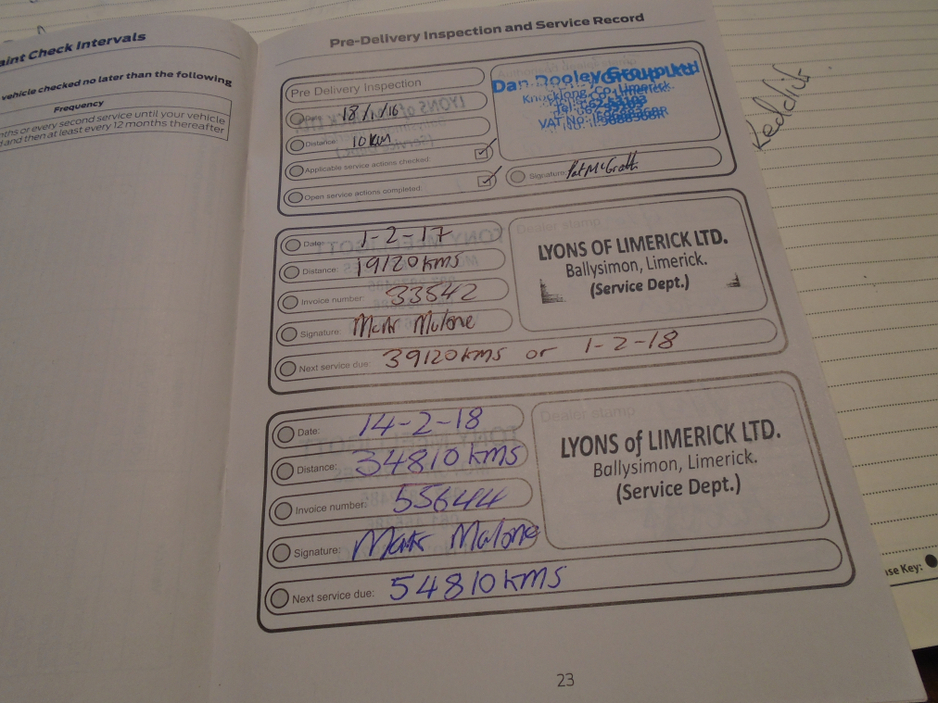 aint Check Intervals
vehicle checked no later than the following
Frequency
nths or every second service until your vehicle
and then at least every 12 months thereafter
Pre-Delivery Inspection and Service Record
Pre Delivery Inspection
18/1/16
Distance: 10 km
Applicable service actions checked:
Open service actions completed:
Dan Dooley Group Ltd
Knocklong, Co. Limerick.
VAT No:
Signature: Pat McGrath
Date: 1-2-17
Distance: 19120 kms
Invoice number: 33542
Signature: Mark Malone
Next service due: 39120 kms or 1-2-18
Dealer stamp
LYONS OF LIMERICK LTD.
Ballysimon, Limerick.
(Service Dept.)
Date: 14-2-18
Distance: 34810 kms
Invoice number: 55644
Signature: Mark Malone
Next service due: 54810 kms
Dealer stamp
LYONS of LIMERICK LTD.
Ballysimon, Limerick.
(Service Dept.)
23
se Key: